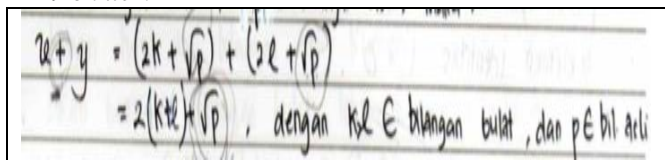 x + y = (2k + √p) + (2l + √p)
= 2(k+l) + √p , dengan k,l ∈ bilangan bulat , dan p ∈ bil. asli